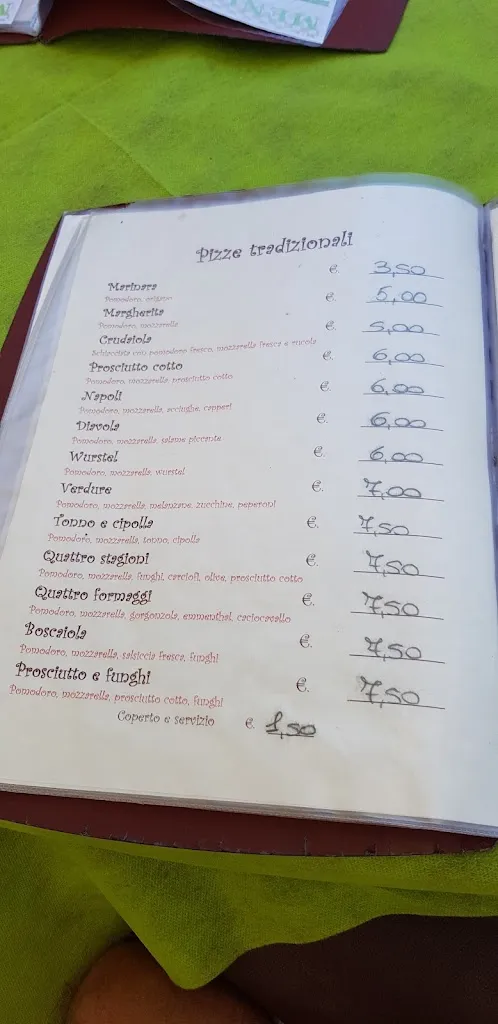 MENU
Pizze tradizionali
Marinara €. 3,50
Pomodoro, origano
Margherita €. 5,00
Pomodoro, mozzarella
Crudaiola €. 5,00
Schiacciata con pomodoro fresco, mozzarella fresca e rucola
Prosciutto cotto €. 6,00
Pomodoro, mozzarella, prosciutto cotto
Napoli €. 6,00
Pomodoro, mozzarella, acciughe, capperi
Diavola €. 6,00
Pomodoro, mozzarella, salame piccante
Wurstel €. 6,00
Pomodoro, mozzarella, wurstel
Verdure €. 7,00
Pomodoro, mozzarella, melanzane, zucchine, peperoni
Tonno e cipolla €. 7,50
Pomodoro, mozzarella, tonno, cipolla
Quattro stagioni €. 7,50
Pomodoro, mozzarella, funghi, carciofi, olive, prosciutto cotto
Quattro formaggi €. 7,50
Pomodoro, mozzarella, gorgonzola, emmenthal, caciocavallo
Boscaiola €. 7,50
Pomodoro, mozzarella, salsiccia fresca, funghi
Prosciutto e funghi €. 7,50
Pomodoro, mozzarella, prosciutto cotto, funghi
Coperto e servizio €. 1,50